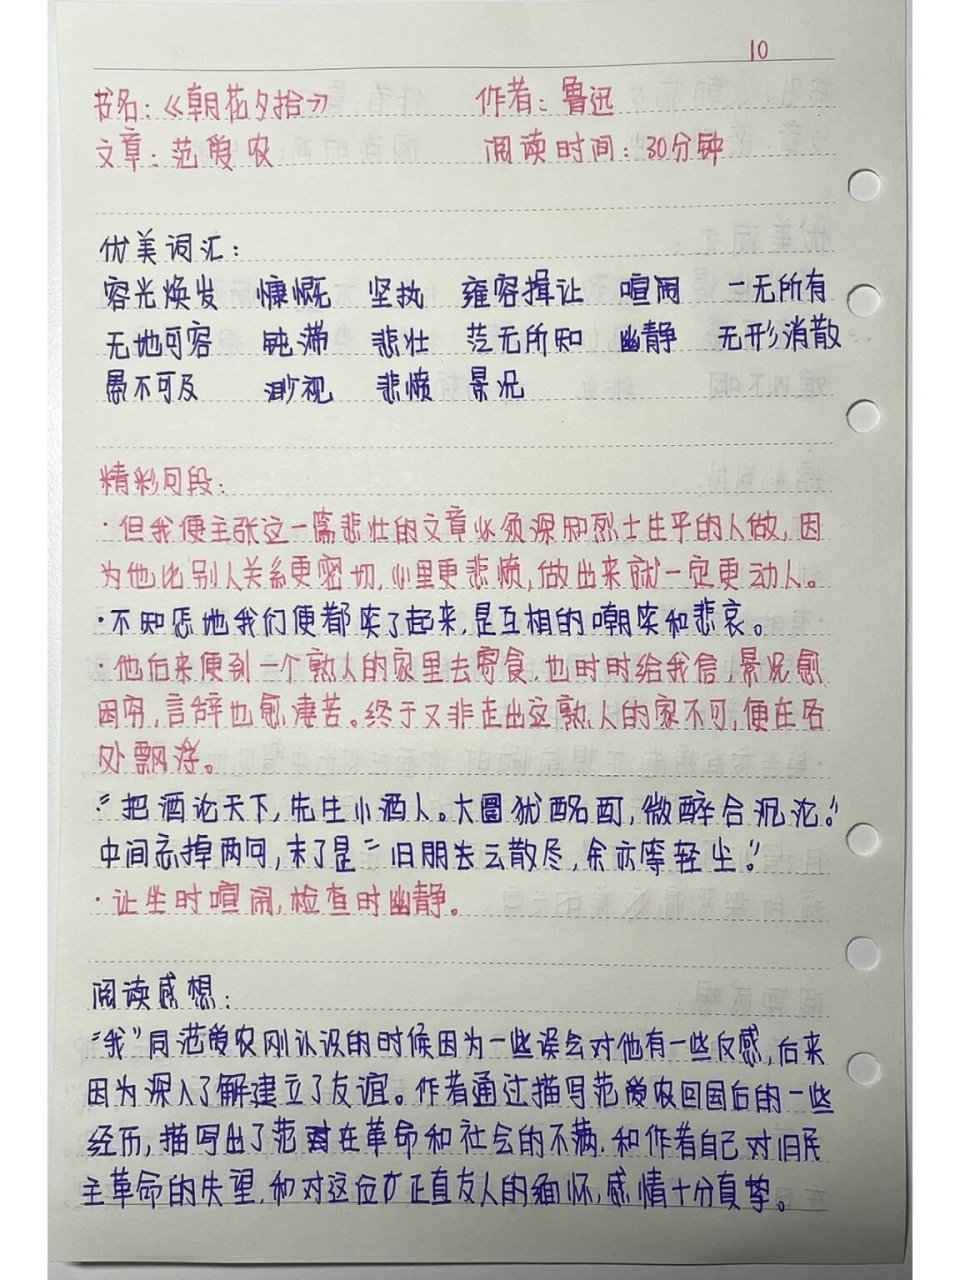 10
书名:《朝花夕拾》 作者:鲁迅
文章:范爱农 阅读时间:30分钟
优美词汇:
容光焕发 慷慨 坚执 雍容揖让 喧闹 一无所有
无地可容 钝滞 悲壮 茫无所知 幽静 无形消散
愚不可及 渺视 悲愤 景况
精彩句段:
·但我便主张这一篇悲壮的文章必须深知烈士生平的人做,因
为他比别人关系更密切,心里更悲愤,做出来就一定更动人。
·不知怎地我们便都笑了起来,是互相的嘲笑和悲哀。
·他后来便到一个熟人的家里去寄食,也时时给我信,景况愈
困穷,言辞也愈凄苦。终于又非走出这熟人的家不可,便在各
处飘浮。
·“把酒论天下,先生小酒人。大圜犹酩酊,微醉合沉沦。”
中间忘掉两句,末了是“旧朋云散尽,余亦等轻尘”
·让坐时喧闹,检查时幽静。
阅读感想:
“我”同范爱农刚认识的时候因为一些误会对他有一些反感,后来
因为深入了解建立了友谊。作者通过描写范爱农回国后的一些
经历,描写出了范对在革命和社会的不满,和作者自己对旧民
主革命的失望,和对这位方正直友人的缅怀,感情十分真挚。